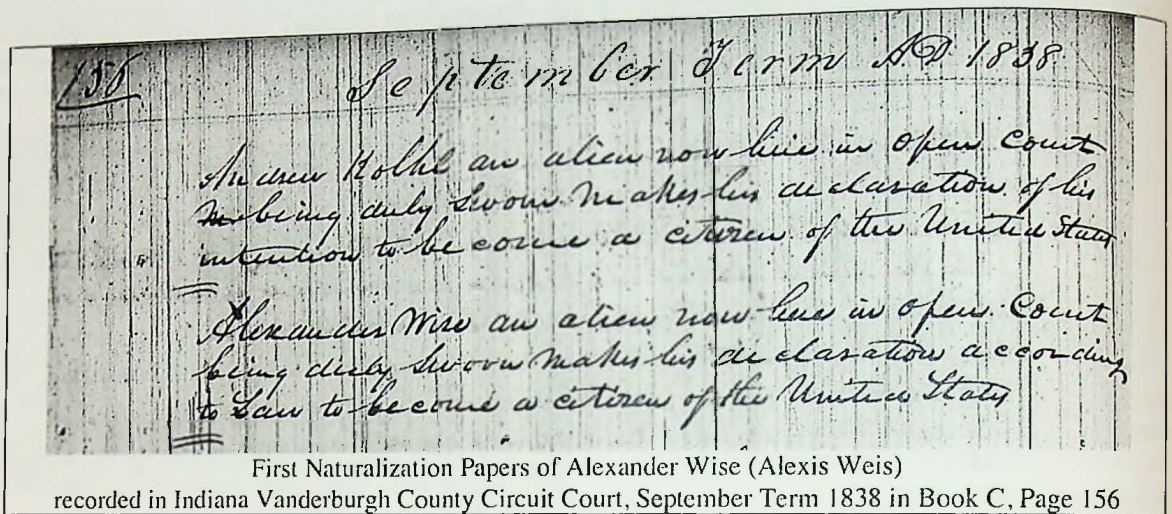 156
September Term AD 1838
Andrew Kolke an alien now here in open Court
being duly sworn makes his declaration of his
intention to become a citizen of the United States
Alexander Wise an alien now here in open Court
being duly sworn makes his declaration according
to Law to become a citizen of the United States
First Naturalization Papers of Alexander Wise (Alexis Weis)
recorded in Indiana Vanderburgh County Circuit Court, September Term 1838 in Book C, Page 156